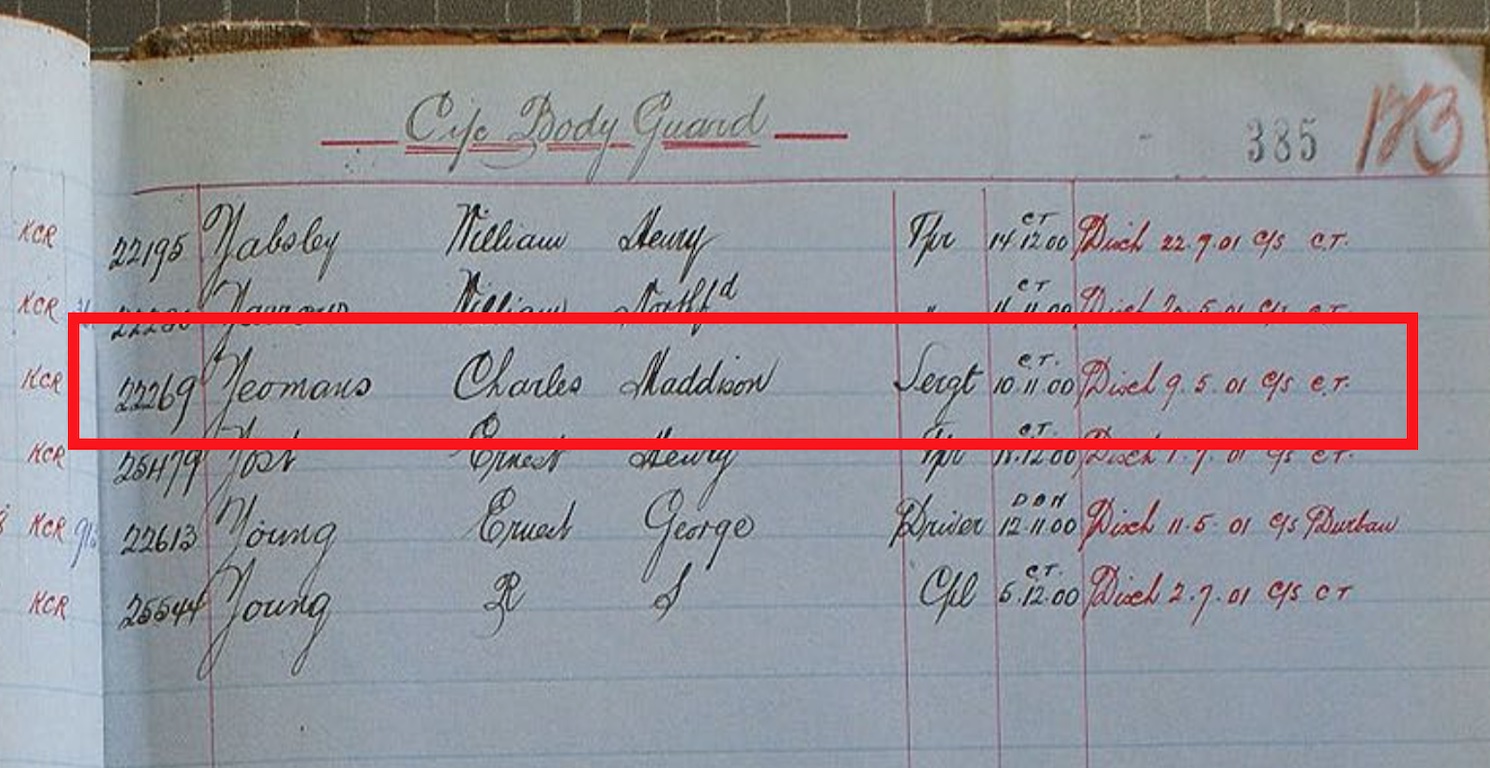 Cife Body Guard 385 183
KCR 22195 Yabsley William Henry Tpr CT 14.12.00 Disch 22.7.01 C/S C.T.
KCR William Northf'd " CT 11.11.00 Disch 5.01 C/S C.T.
KCR 22269 Yeomans Charles Maddison Sergt C.T. 10.11.00 Disch 9.5.01 C/S C.T.
KCR 25479 Yost Ernest Henry Tpr C.T. .12.00 Disch .7.01 C/S C.T.
KCR 22613 Young Ernest George Driver DBN 12.11.00 Disch 11.5.01 C/S Durban
KCR 25544 Young R S Cpl C.T. 5.12.00 Disch 2.7.01 C/S CT